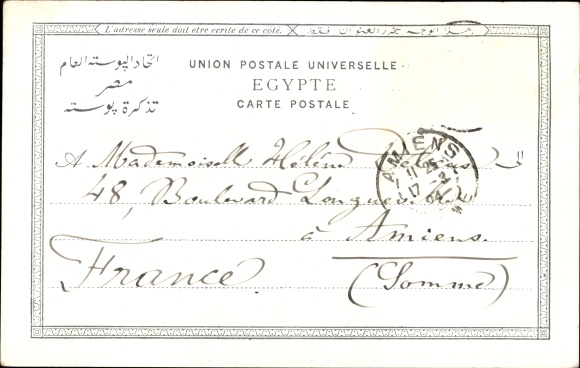 L'adresse seule doit etre ecrite de ce coté. هذا الوجه يحرر العنوان فقط
اتحاد البوسته العام
مصر
تذكرة بوسته
UNION POSTALE UNIVERSELLE
EGYPTE
CARTE POSTALE
A Mademoiselle Hélène الى
48, Boulevard Longueville
à Amiens.
France (Somme)
AMIENS
11 25
17